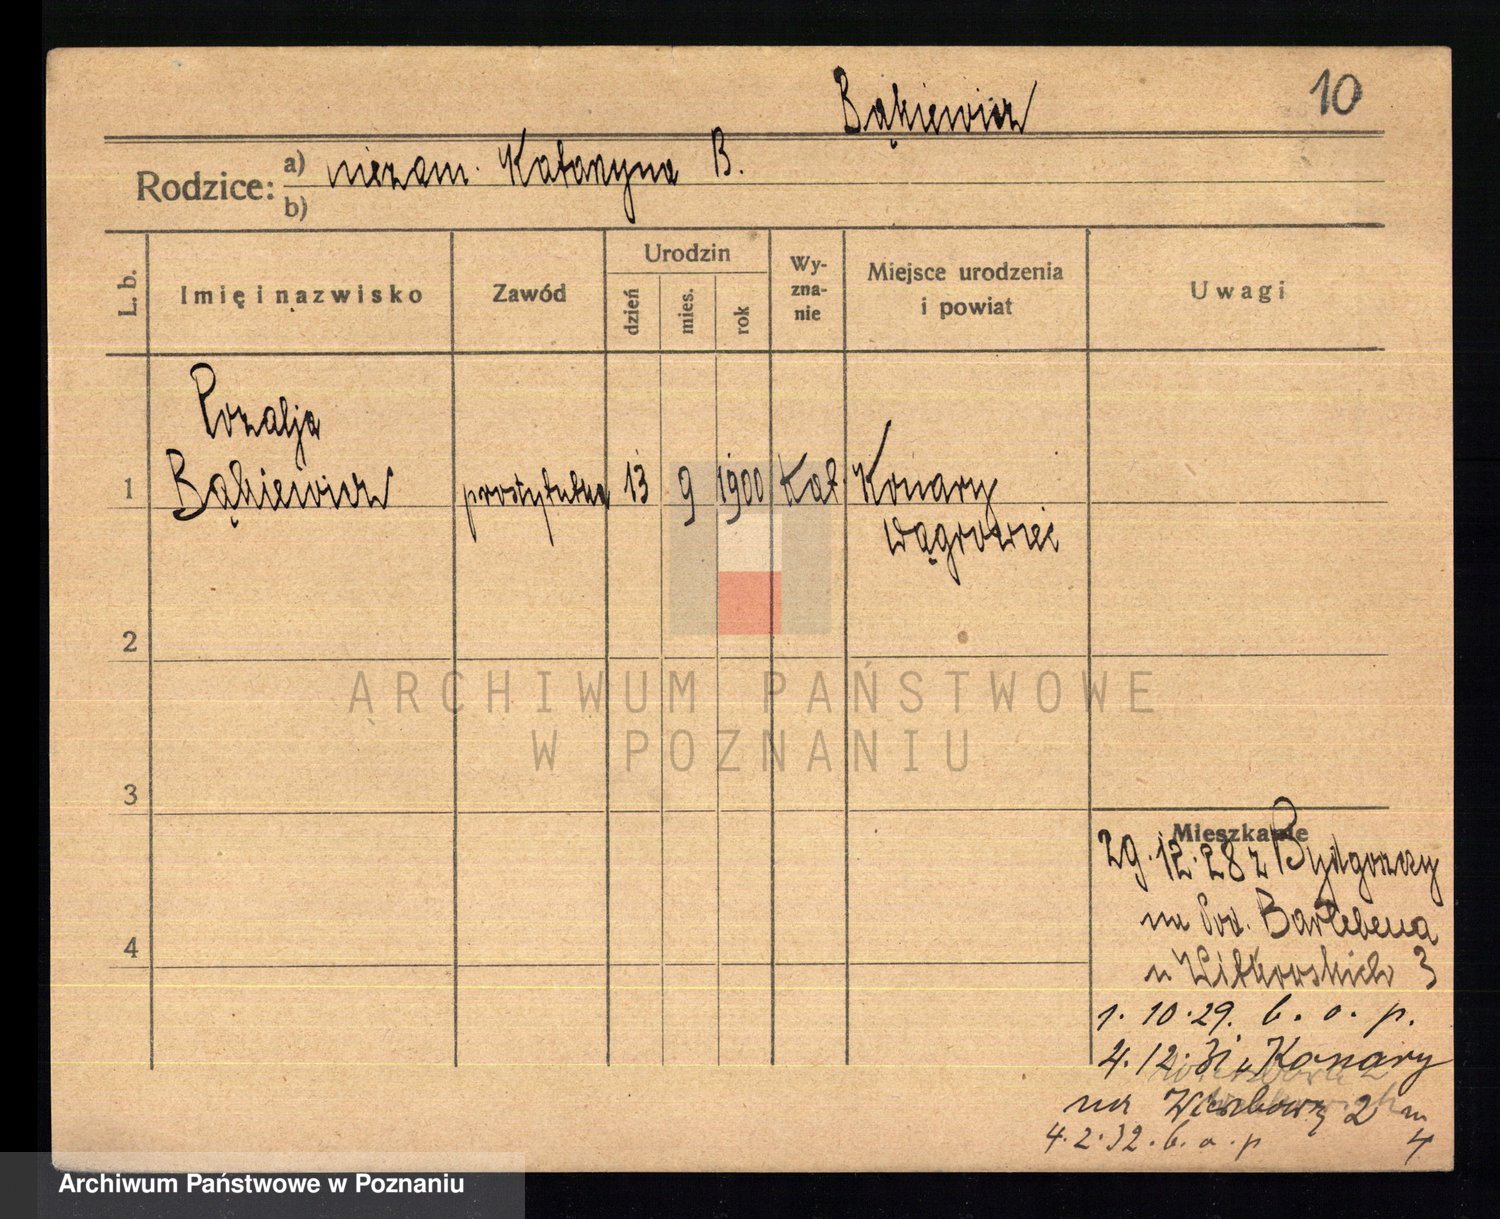 Bąkiewicz
10
Rodzice: a) niezam. Katarzyna B.
b)
L. b. Imię i nazwisko Zawód Urodzin dzień mies. rok Wy-zna-nie Miejsce urodzenia i powiat Uwagi
Rozalja
1 Bąkiewicz prostytutka 13 9 1900 Kat. Konary
Wągrowiec
2
ARCHIWUM PAŃSTWOWE
W POZNANIU
3
Mieszkanie
29.12.28 z Bydgoszczy
na Pod.
u Witkowskich 3
4
1.10.29. b. o. p.
4.12.31 Konary
na Wierzbową 2 m
4
4.2.32. b. o. p
Archiwum Państwowe w Poznaniu